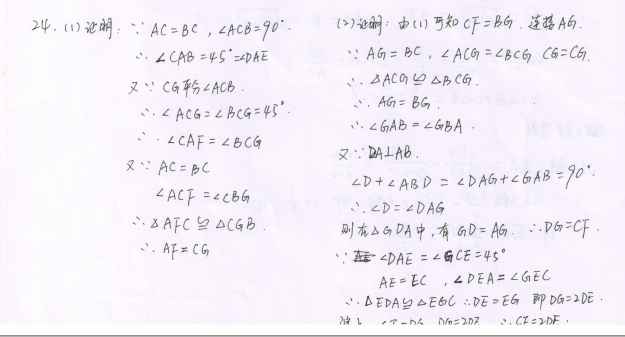 24. (1) 证明: ∵ AC=BC, ∠ACB=90°
∴ ∠CAB=45°=∠DAE
又∵ CG平分∠ACB.
∴ ∠ACG=∠BCG=45°.
∴ ∠CAF=∠BCG
又∵ AC=BC
∠ACF=∠CBG
∴ △AFC≌△CGB.
∴ AF=CG
(2) 证明: 由(1)可知 CF=BG. 连接AG.
∵ AG=BC, ∠ACG=∠BCG CG=CG.
∴ △ACG≌△BCG.
∴ AG=BG.
∴ ∠GAB=∠GBA.
又∵ DA⊥AB.
∠D+∠ABD=∠DAG+∠GAB=90°.
∴ ∠D=∠DAG
则在△GDA中, 有 GD=AG. ∴ DG=CF.
∵ ∠DAE=∠GCE=45°
AE=EC, ∠DEA=∠GEC
∴ △EDA≌△EGC ∴ DE=EG 即 DG=2DE.
CF=DG DG=2DE ∴ CF=2DE.